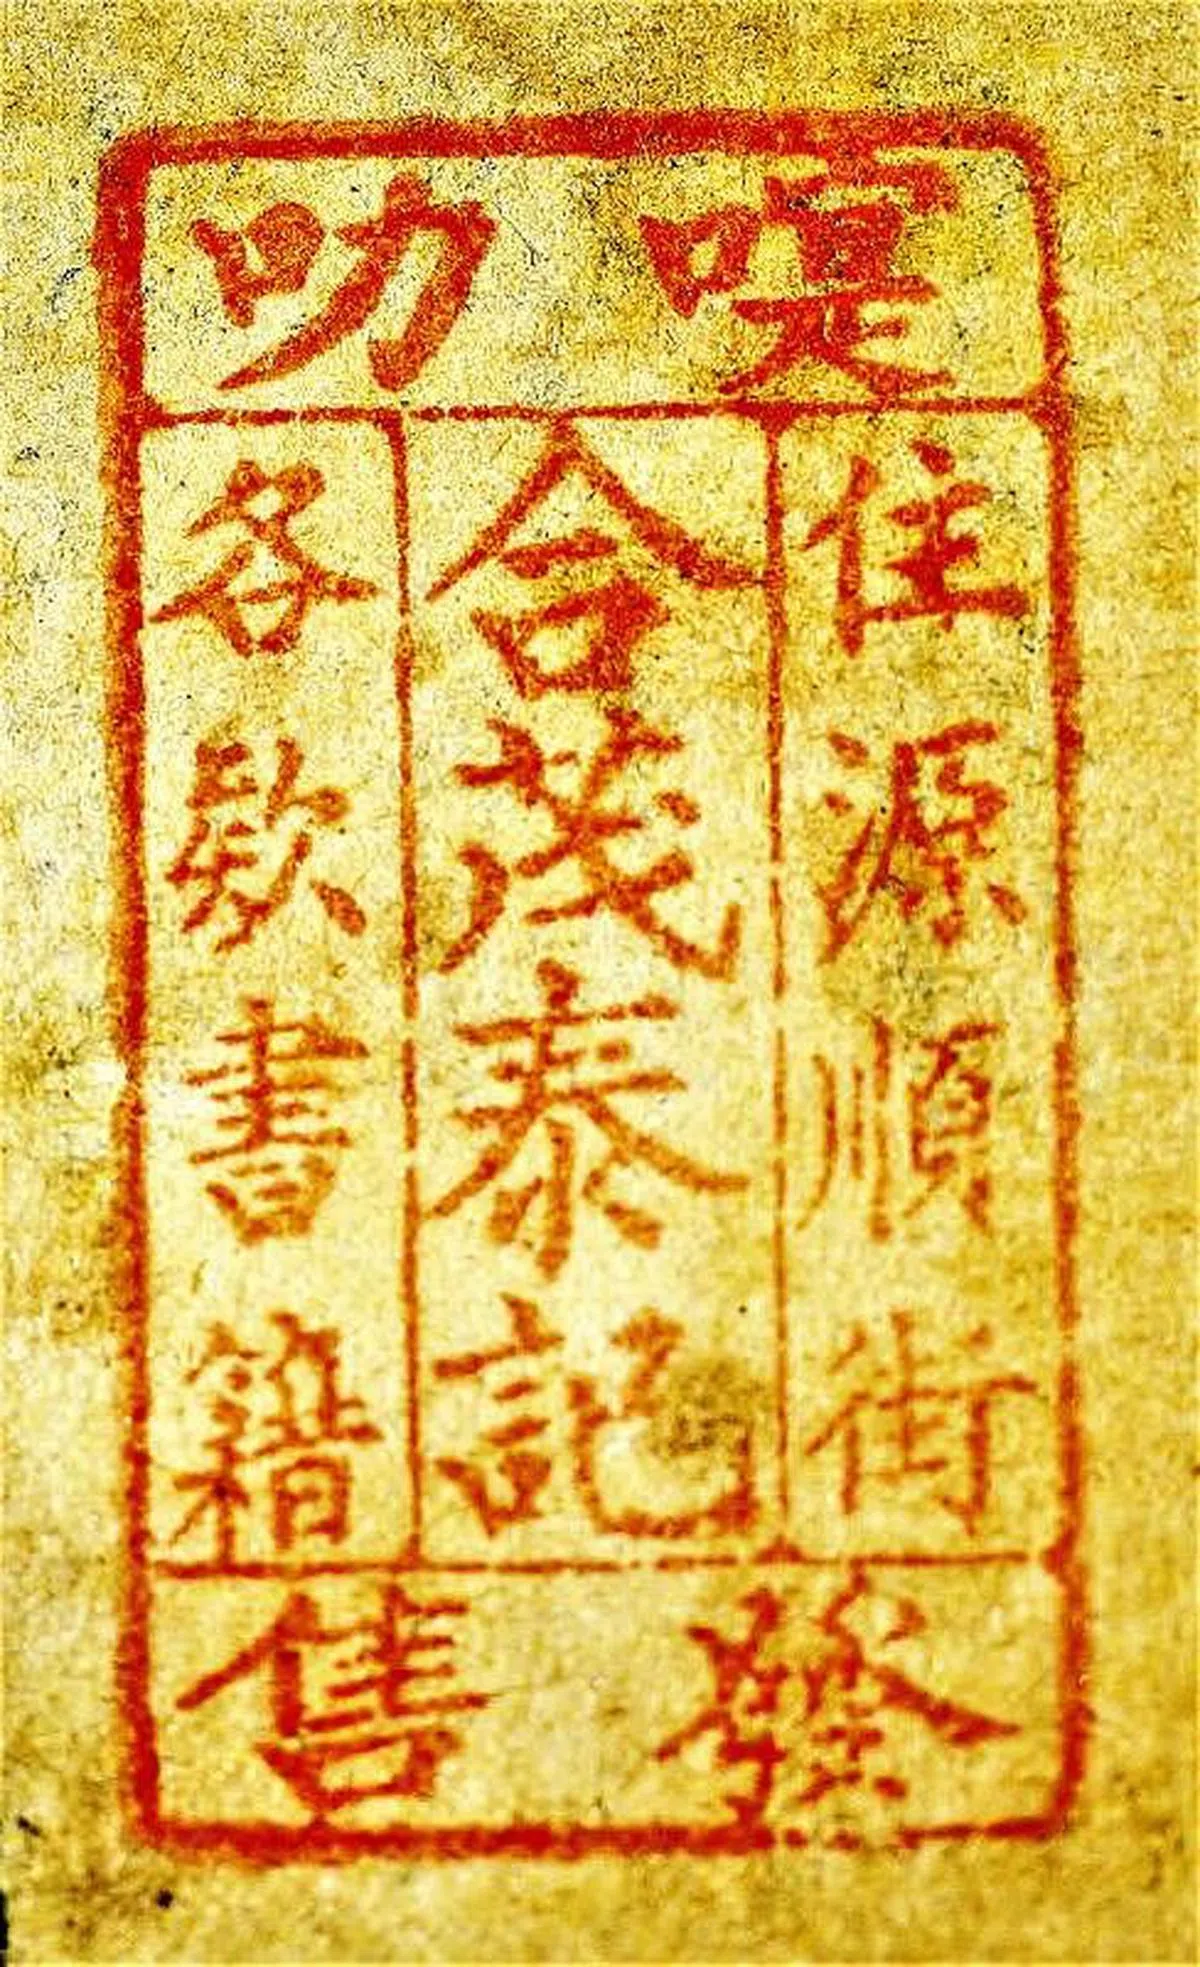 叻
住源順街
合茂泰記
各欵書籍
發售